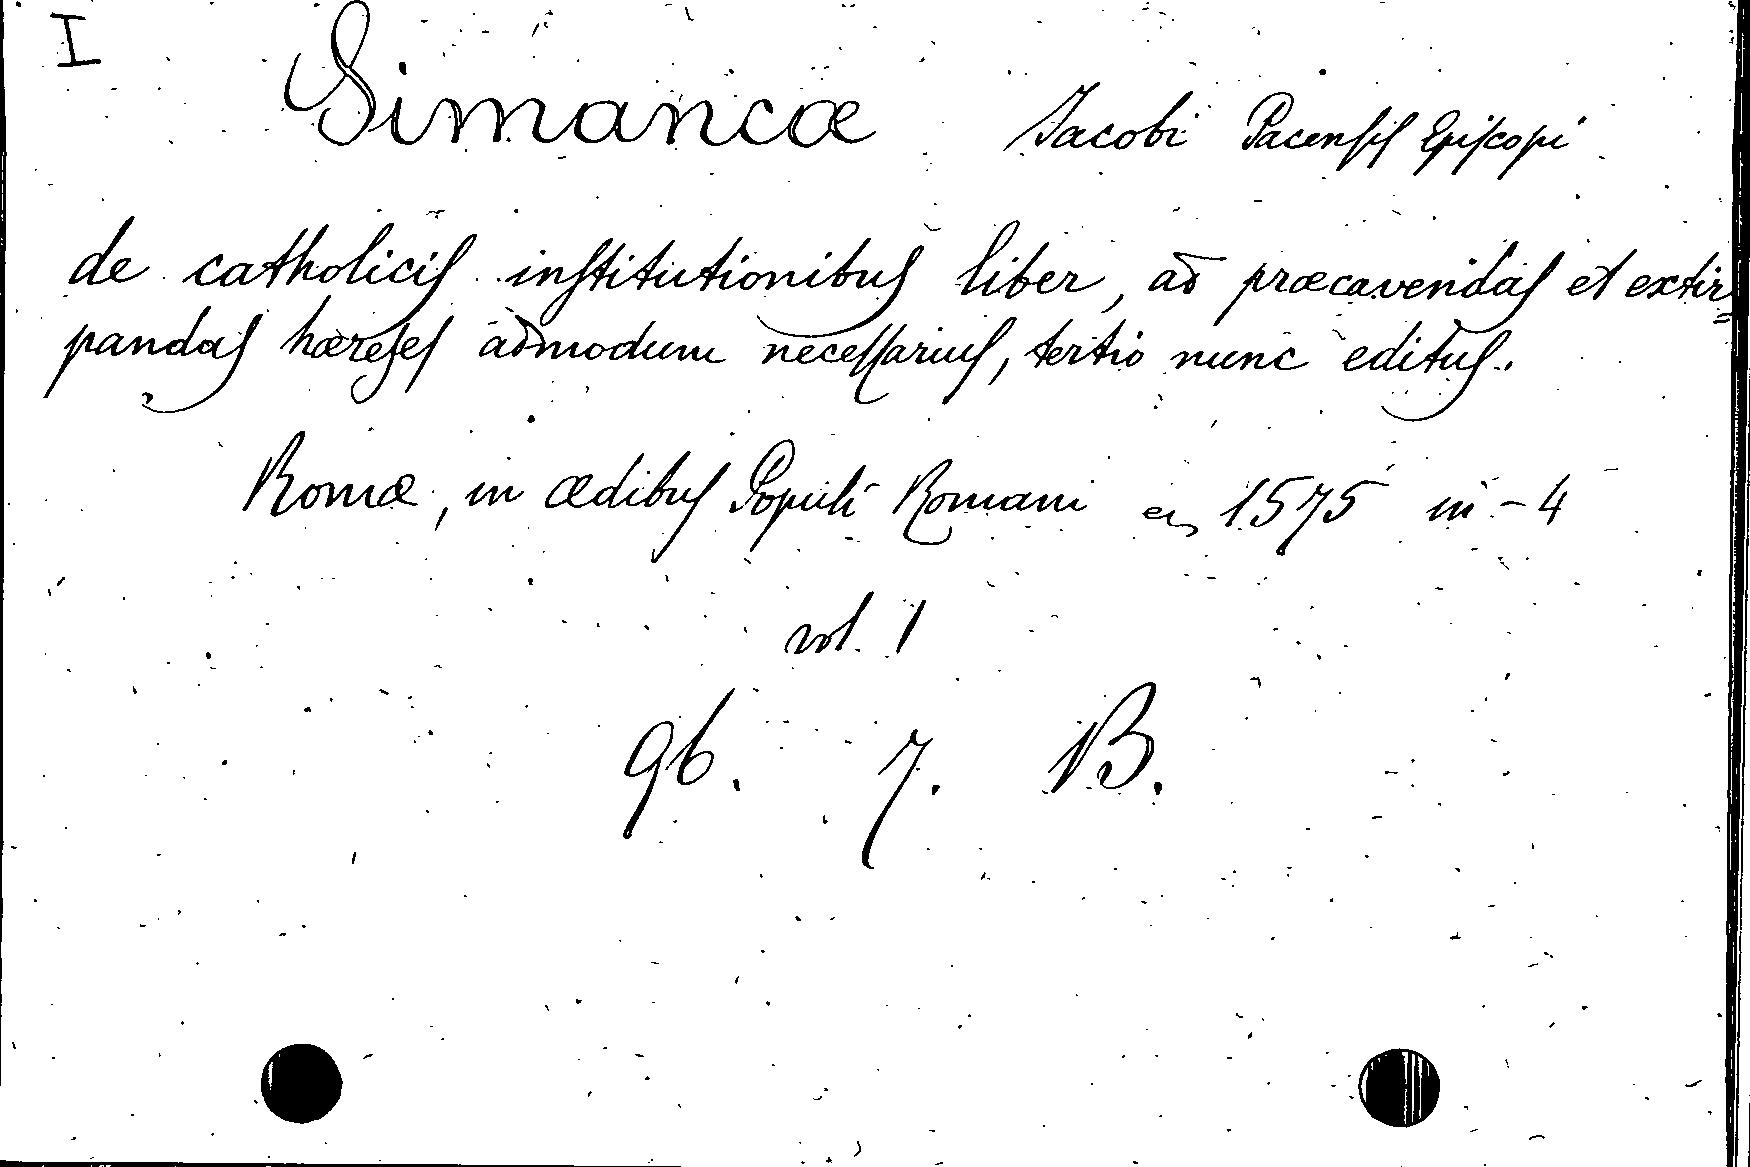 I
Simancæ Jacobi Pacensis Episcopi
de catholicis institutionibus liber, ad præcavendas et extir=
pandas hæreses admodum necessarius, tertio nunc editus.
Romæ, in ædibus Populi Romani en 1575 in-4
vol. 1
96. 7. B.